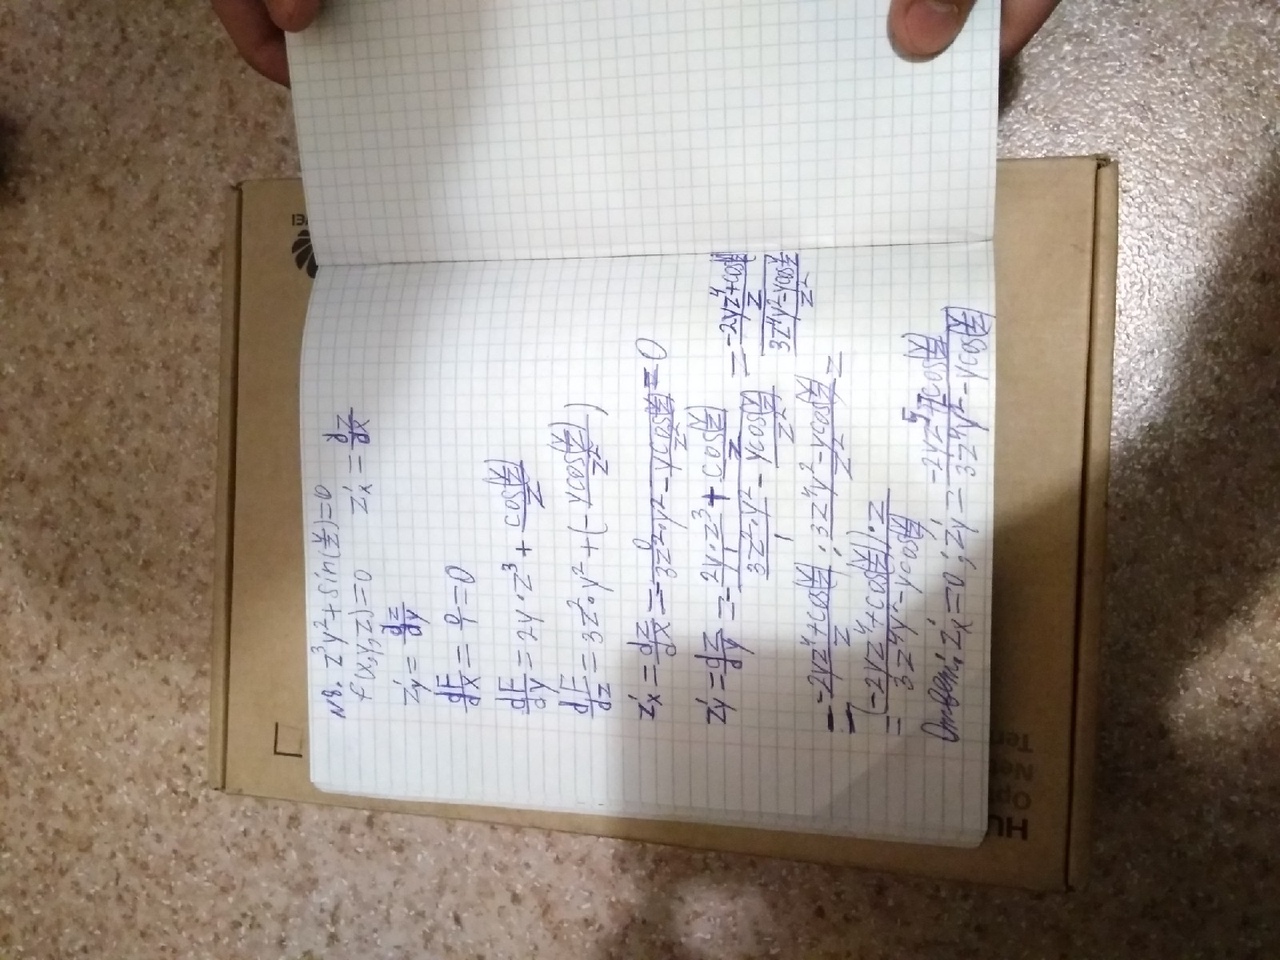 №8. z³y²+sin(y/z)=0
f(x,y,z)=0 z'x = dz/dx
z'y = dz/dy
dF/dx = 0/1 = 0
dF/dy = 2y·z³ + cos(y/z)/z
dF/dz = 3z²·y² + (- ycos(y/z)/z²)
z'x = dz/dx = - 0/(3z²·y² - ycos(y/z)/z²) = 0
z'y = dz/dy = - (2y·z³/1 + cos(y/z)/z)/(3z²·y²/1 - ycos(y/z)/z²) = ((-2yz⁴+cos(y/z))/z)/((3z⁴y²-ycos(y/z))/z²)
= (-2yz⁴+cos(y/z))/z : (3z⁴y²-ycos(y/z))/z² =
= ((-2yz⁴+cos(y/z))·z)/(3z⁴y²-ycos(y/z))
Ответ: z'x=0; z'y = (-2yz⁵+zcos(y/z))/(3z⁴y²-ycos(y/z))
HU
Op
Ne
Te
WEI